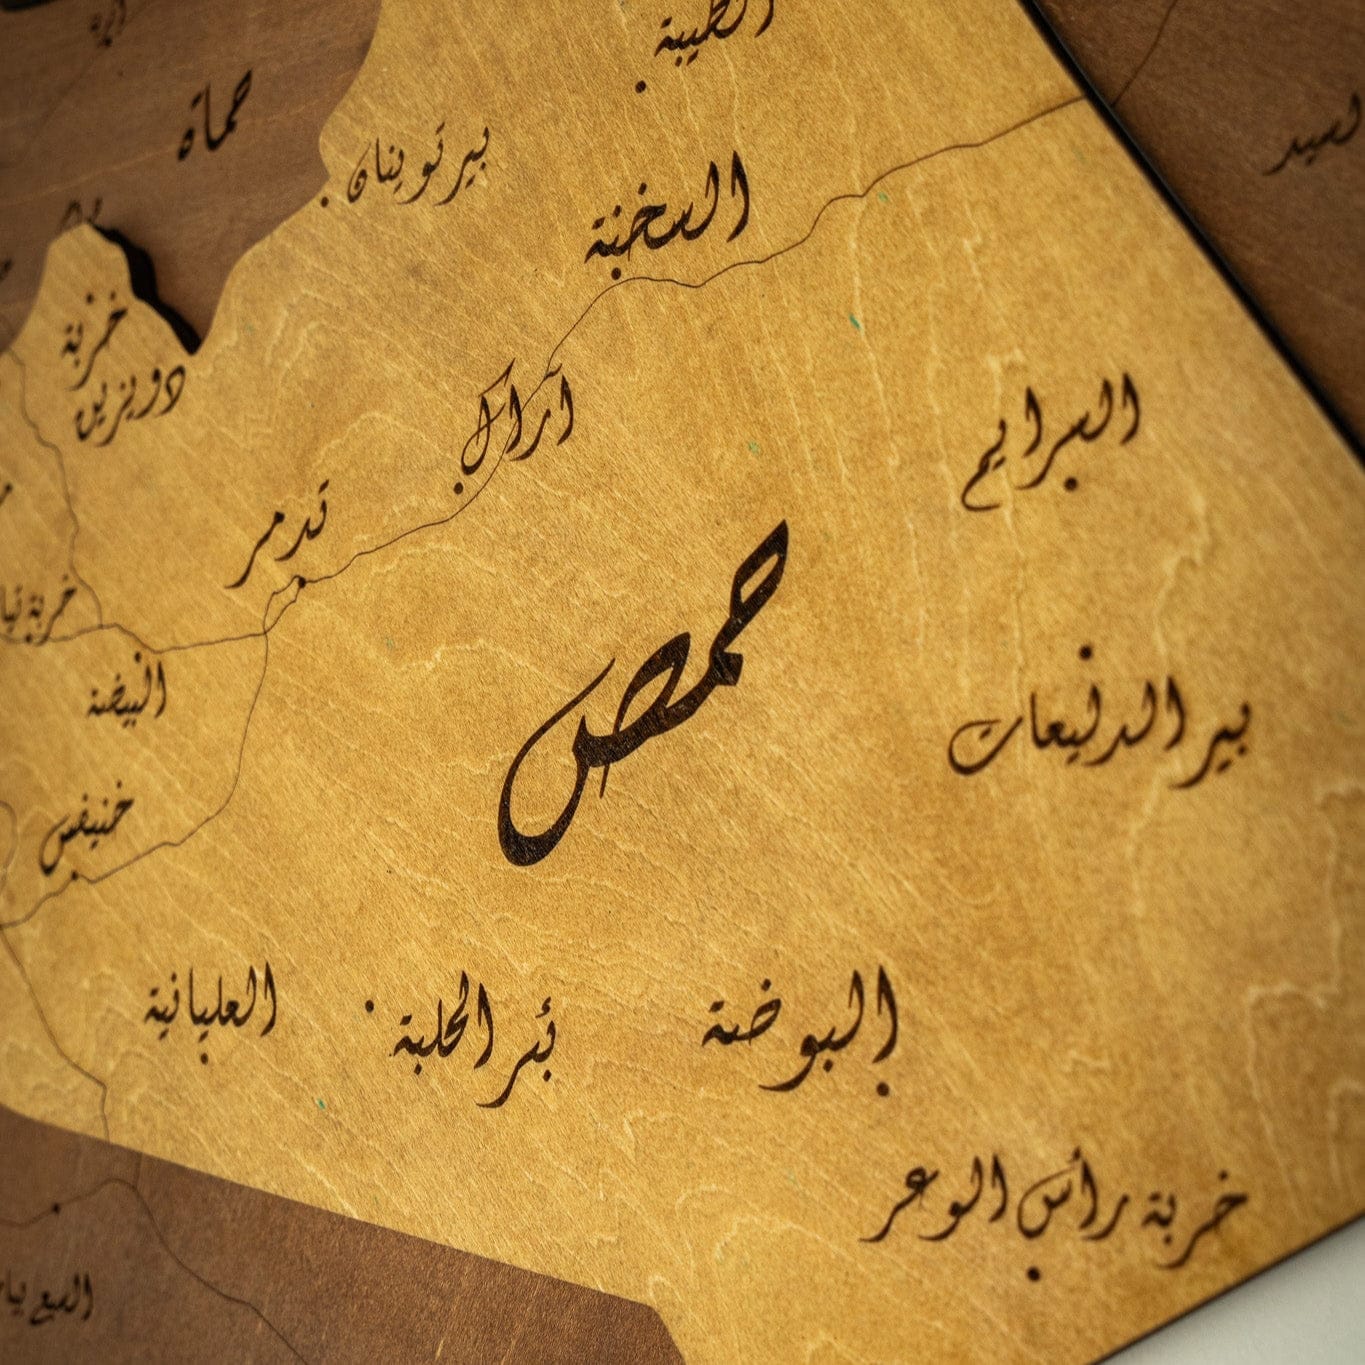 الطيبة
حماة
بير توينان
السخنة
خربة
دويزين
آراك
السرايم
تدمر
حمص
البيضة
بير الدليعات
خنيفس
العليانية
بئر الحلبة
البوضة
خربة رأس الوعر
السبع بيار